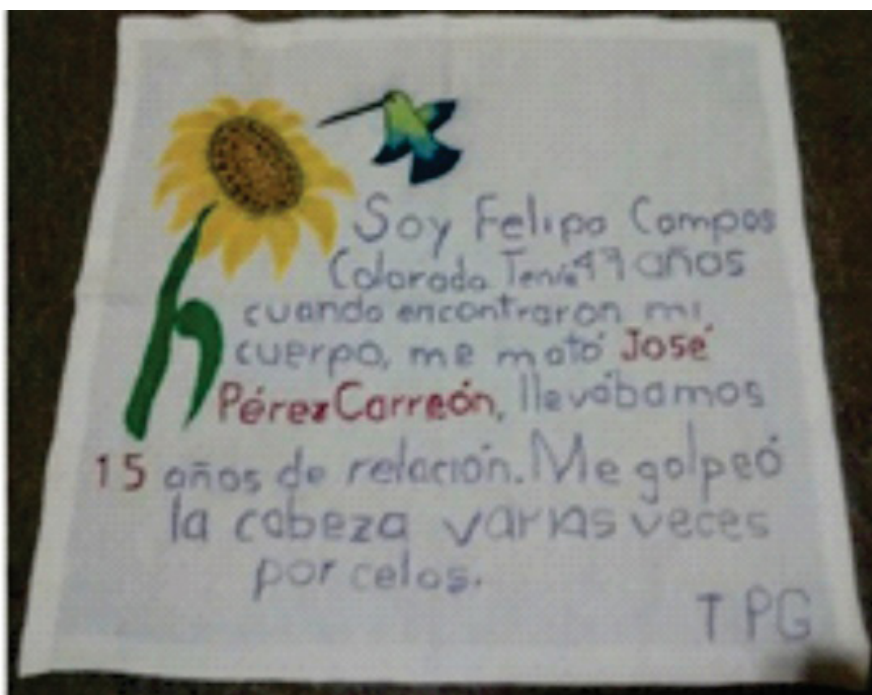 Soy Felipa Campos
Colorada Tenía 47 años
cuando encontraron mi
cuerpo, me mató José
Pérez Carreón, llevábamos
15 años de relación. Me golpeó
la cabeza varias veces
por celos.
T PG